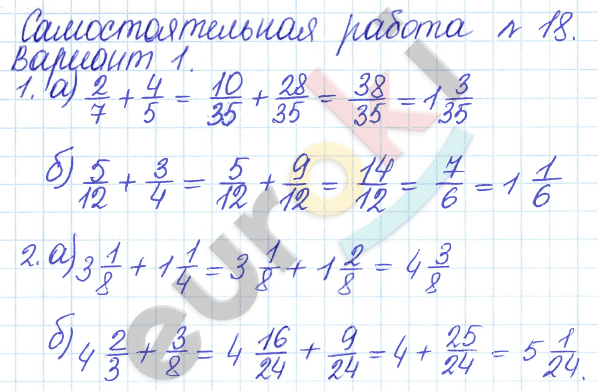 Самостоятельная работа № 18.
Вариант 1.
1. а) 2/7 + 4/5 = 10/35 + 28/35 = 38/35 = 1 3/35
б) 5/12 + 3/4 = 5/12 + 9/12 = 14/12 = 7/6 = 1 1/6
2. а) 3 1/8 + 1 1/4 = 3 1/8 + 1 2/8 = 4 3/8
б) 4 2/3 + 3/8 = 4 16/24 + 9/24 = 4 + 25/24 = 5 1/24.
euroki